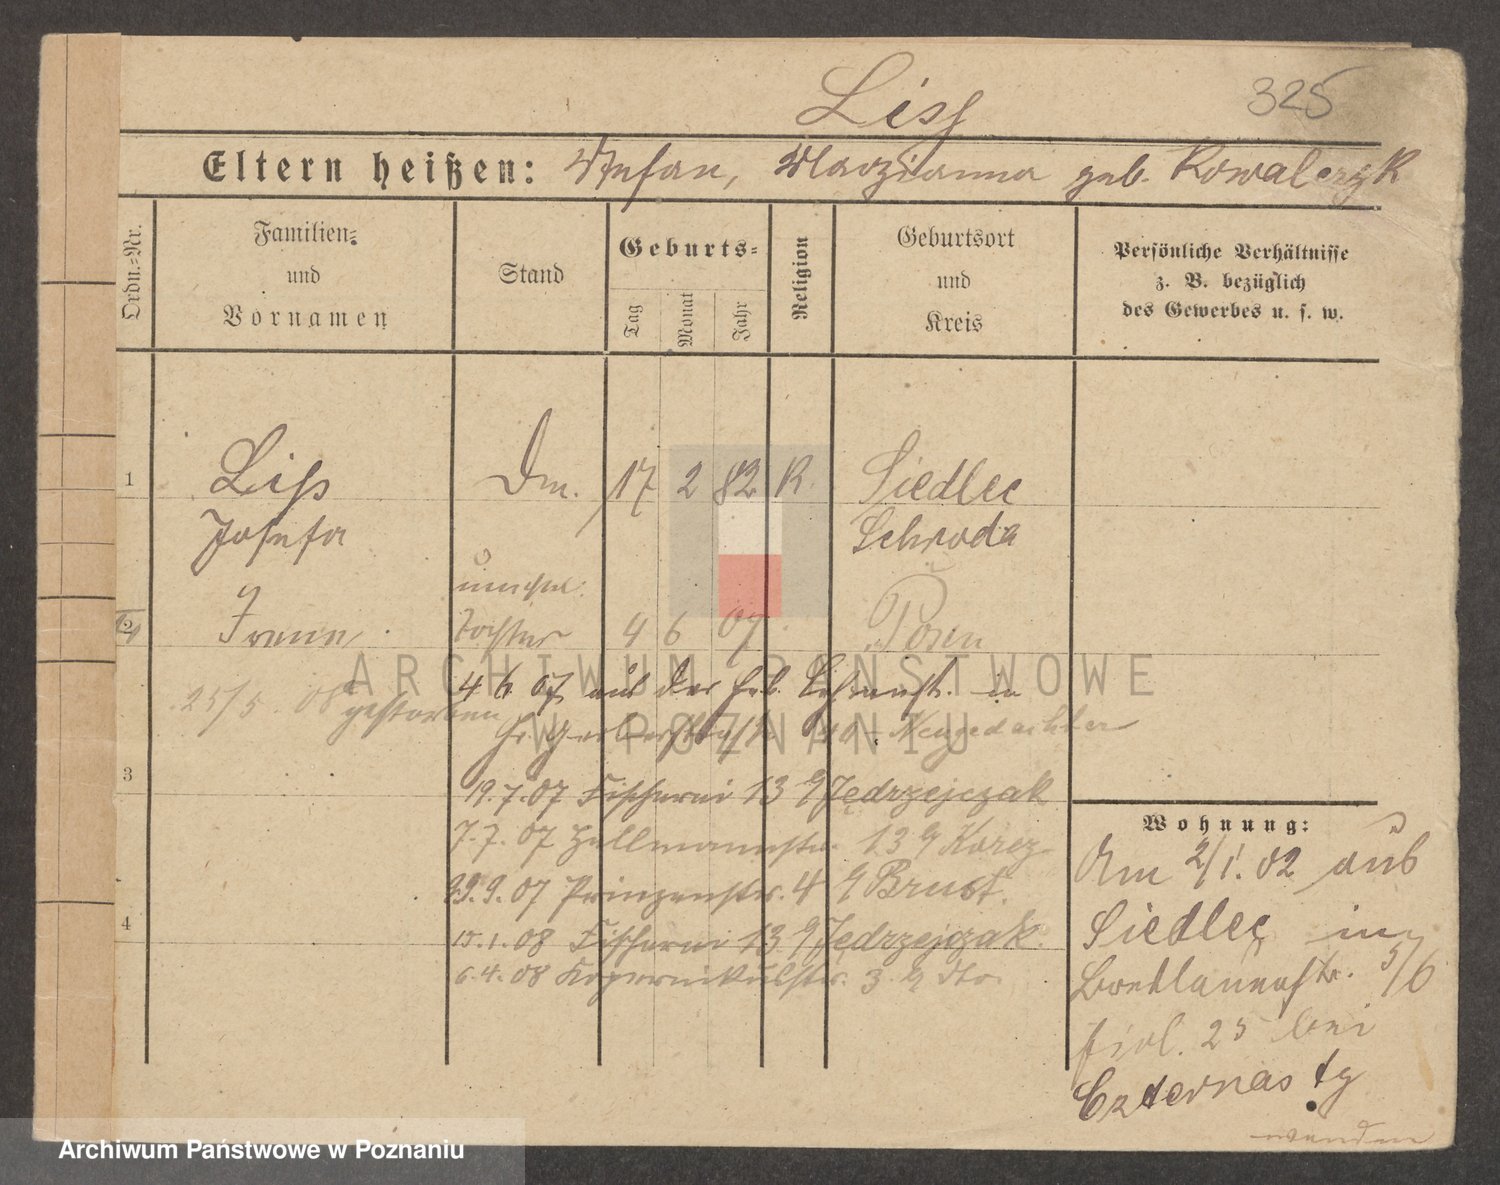 Liss
325
Eltern heißen: Stefan, Marzianna geb. Kowalczyk
Ordn.-Nr.
Familien-
und
Vornamen
Stand
Geburts-
Tag
Monat
Jahr
Religion
Geburtsort
und
Kreis
Persönliche Verhältnisse
z. B. bezüglich
des Gewerbes u. s. w.
1
Liss Dm. 17 2 82 K. Siedlec
Josefa Schroda
unehel.
2 Irene Tochter 4 6 07 Posen
ARCHIWUM PAŃSTWOWE
W POZNANIU
4 6. 07 aus der in
25/5. 08 gestorben
3
19.7.07 Fischerei 13 Jędrzejczak
7.7.07 13
29.9.07 Prinzenstr. 4 Brust.
4
15.1.08 Fischerei 13 Jędrzejczak.
6.4.08 Kopernikusstr. 3. dto.
Wohnung:
Am 2/1. 02 aus
Siedlec in
5/6
25 bei
wenden
Archiwum Państwowe w Poznaniu